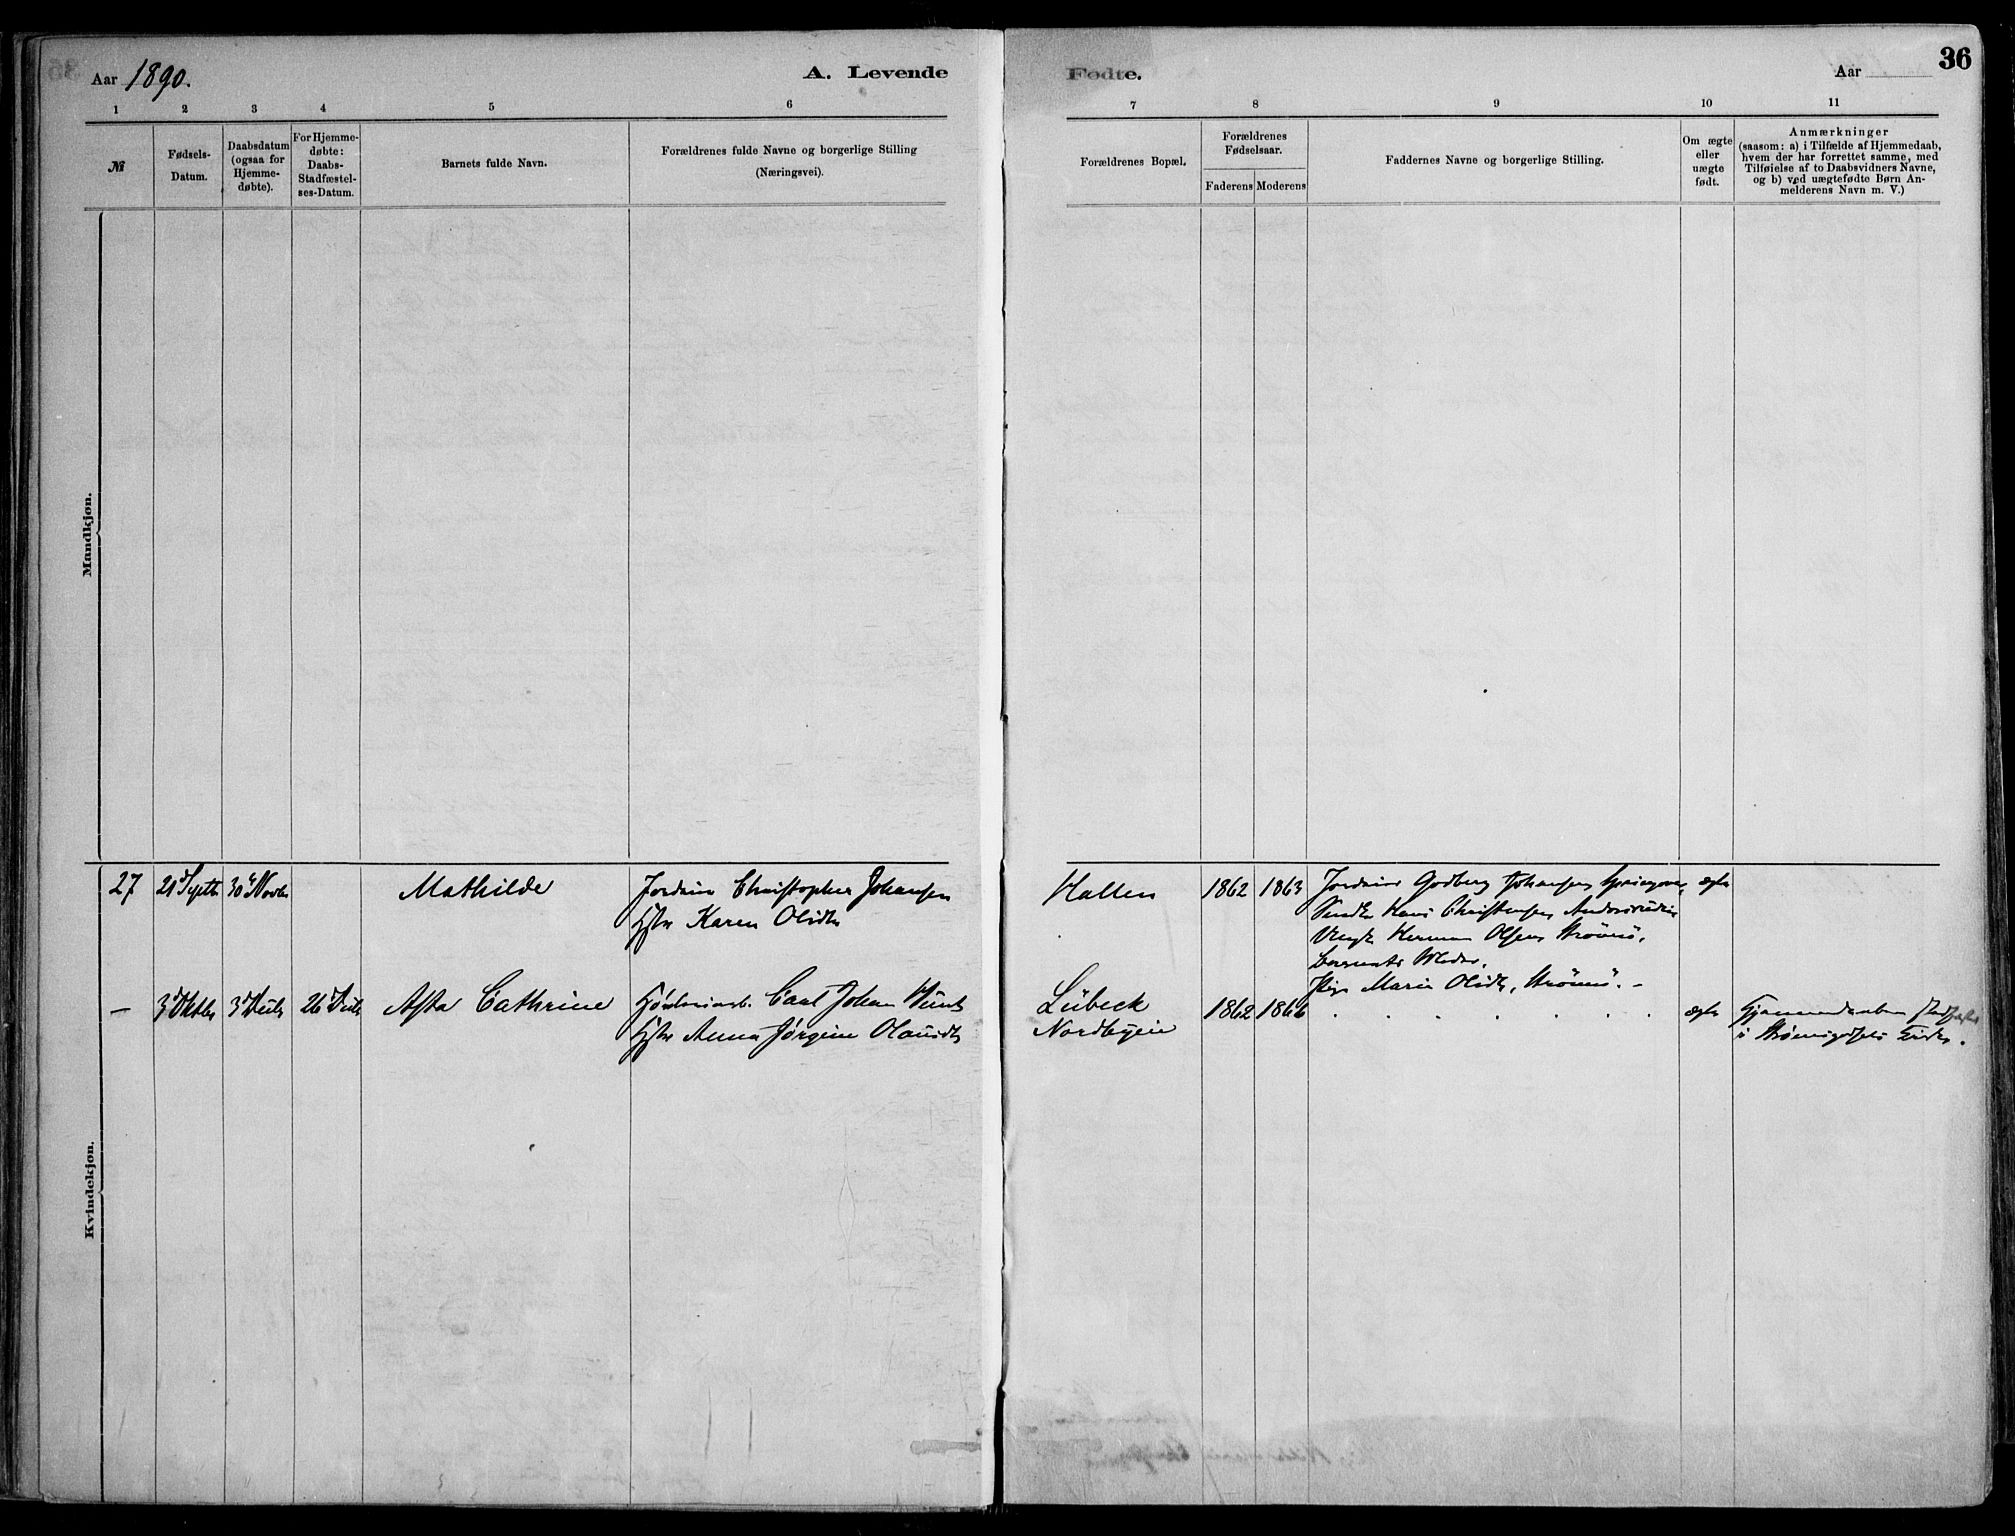 Aar 1890.
A. Levende
Fødte.
Aar
36
1 2 3 4 5 6 7 8 9 10 11
№
Fødsels-
Datum.
Daabsdatum
(ogsaa for
Hjemme-
døbte).
For Hjemme-
døbte:
Daabs-
Stadfæstel-
ses-Datum.
Barnets fulde Navn.
Forældrenes fulde Navne og borgerlige Stilling
(Næringsvei).
Forældrenes Bopæl.
Forældrenes
Fødselsaar.
Faderens Moderens
Faddernes Navne og borgerlige Stilling.
Om ægte
eller
uægte
født.
Anmærkninger
(saasom: a) i Tilfælde af Hjemmedaab,
hvem der har forrettet samme, med
Tilføielse af to Daabsvidners Navne,
og b) ved uægtefødte Børn An-
melderens Navn m. V.)
Mandkjøn.
Kvindekjøn.
27 21 Septb 30 Novbr Mathilde
Christopher Johansen
Hstr Karen Olsdtr
Hallen 1862 1863
Godberg Johansen
Hans Christensen
Herman Olsen Strømsø,
Barnets Moder,
Pige Marie Olsdtr, Strømsø. -
ægte
— 3 Oktbr 3 26 Asta Cathrine
Carl Johan
Hstr Anna Jørgine Olausdtr
Lübeck
Nordbyen
1862 1866 . . . . . . . ægte
Hjemmedaaben stadfæstet
i Strømsgodset Kirke.